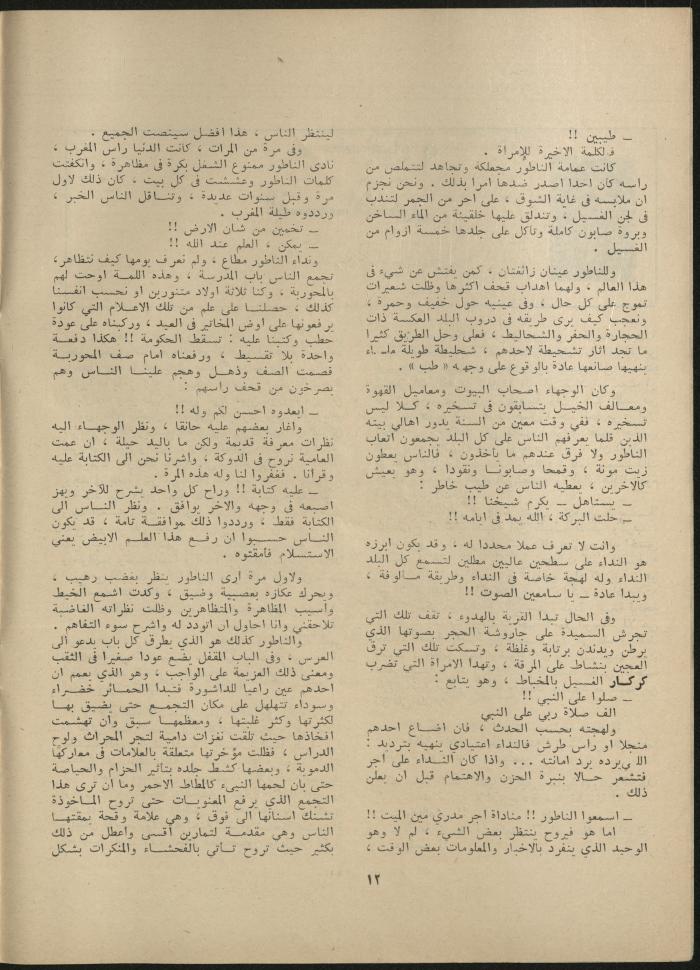 ـ طيبين !!
فـلكلمة الاخيرة للإمراة .
كانت عمامة الناطور مجعلكة وتجاهد لتتملص من
راسه كان احدا اصدر ضدها امرا بذلك . ونحن نجزم
ان ملابسه في غاية الشوق ، على احر من الجمر لتندب
في لجن الغسيل ، وتندلق عليها خلقينة من الماء الساخن
وبروة صابون كاملة وتاكل على جلدها خمسة ازوام من
الغسيل .
وللناطور عينان زائغتان ، كمن يفتش عن شيء في
هذا العالم ، ولهما اهداب قحف اكثرها وظلت شعيرات
تموج على كل حال ، وفي عينيه حول خفيف وحمرة ،
ونعجب كيف يرى طريقه في دروب البلد العكسة ذات
الحجارة والحفر والشحاليط ، فعلى وجل الطريق كثيرا
ما تجد اثار تشحيطة لاحدهم ، شحليطة طويلة
ينهيها صانعها عادة بالوقوع على وجهه « طب » .
وكان الوجهاء اصحاب البيوت ومعاميل القهوة
ومعـالف الخيـل يتسابقون في تسخيره ، كـلا ليس
تسخيره ، ففي وقت معين من السنة يدور اهالي بيته
الذين قلما يعرفهم الناس على كل البلد يجمعون اتعاب
الناطور ولا فرق عندهم ما ياخذون ، فالناس يعطون
زيت مونة ، وقمحا وصابونـا ونقودا ، وهو يعيش
كالاخرين ، يعطيه الناس عن طيب خاطر :
ـ يستاهل ـ يكرم شيخنا !!
ـ حلت البركة ، الله يمد في ايامه !!
وانت لا تعرف عملا محددا له ، وقد يكون ابرزه
هو النداء على سطحين عاليين مطلين لتسمع كل البلد
النداء وله لهجة خاصة في النداء وطريقة مـالوفة ،
ويبدا عادة ـ يا سامعين الصوت !!
وفي الحال تبدا القرية بالهدوء ، تقف تلك التي
تجرش السميدة على جاروشة الحجر بصوتها الذي
يرطن ويدندن برتابة وغلظة ، وتسكت تلك التي ترق
العجين بنشاط على المرقة ، وتهدا الامراة التي تضرب
كركـار الغسيل بالمخباط ، وهو يتابع :
ـ صلوا على النبي !!
الف صلاة ربي على النبي
ولهجته بحسب الحدث ، فان اضـاع احدهم
منجلا او راس طرش فالنداء اعتيادي ينهيه بترديد :
اللي يرده يرد امانته ... واذا كان النـداء على اجر
فتشعر حـالا بنبرة الحزن والاهتمام قبل ان يعلن
ذلك .
ـ اسمعوا الناطور !! مناداة اجر مدري مين الميت !!
اما هو فيروح ينتظر بعض الشيء ، لم لا وهو
الوحيد الذي ينفرد بالاخبار والمعلومات بعض الوقت ،
لينتظر الناس ، هذا افضل سينصت الجميع .
وفي مرة من المرات ، كانت الدنيا راس المغرب ،
نادى الناطور ممنوع الشغل بكرة في مظاهرة ، وانكفتت
كلمات الناطور وعششت في كل بيت ، كان ذلك لاول
مرة وقبل سنوات عديدة ، وتنـاقل الناس الخبر ،
ورددوه طيلة المغرب .
ـ تخمين من شان الارض !!
ـ يمكن ، العلم عند الله !!
ونداء الناطور مطاع ، ولم نعرف يومها كيف نتظاهر،
تجمع الناس باب المدرسة ، وهذه اللمـة اوحت لهم
بالمحوربة ، وكنا ثلاثة اولاد متنورين او نحسب انفسنا
كذلك ، حصلنـا على علم من تلك الاعـلام التي كانوا
يرفعونها على اوض المخاتير في العيد ، وركبناه على عودة
حطب وكتبنا عليه : تسقط الحكومة !! هكذا دفعـة
واحدة بلا تقسيط ، ورفعناه امام صف المحوربـة
فصمت الصف وذهـل وهجم علينـا النـاس وهم
يصرخون من قحف راسهم :
ـ ابعدوه احسن لكم وله !!
واغار بعضهم عليه حانقا ، ونظر الوجهـاء اليه
نظرات معرفة قديمة ولكن ما باليد حيلة ، ان عمت
العامية نروح في الدوكة ، واشرنا نحن الى الكتابة عليه
وقرانا . فغفروا لنا وله هذه المرة .
ـ عليه كتابة !! وراح كل واحد يشرح للآخر ويهز
اصبعه في وجهه والاخر يوافق . ونظر النـاس الى
الكتابة فقط ، ورددوا ذلك موافقـة تامة ، قد يكون
النـاس حسـبوا ان رفـع هذا العلـم الابيض يعني
الاستسلام فامقتوه .
ولاول مرة ارى الناطور ينظر بغضب رهيب ،
ويحرك عكازه بعصبية وضيق ، وكدت اشمع الخيط
واسيب المظاهرة والمتظاهرين وظلت نظراته الغاضبة
تلاحقني وانا احاول ان اتودد له واشرح سوء التفاهم .
والناطور كذلك هو الذي يطرق كل باب يدعو الى
العرس ، وفي الباب المقفل يضع عودا صغيرا في الثقب
ومعنى ذلك العزيمة على الواجب ، وهو الذي يعمم ان
احدهم عين راعيا للداشورة فتبدا الحمـائر خضـراء
وسوداء تتهلهل على مكان التجمـع حتى يضيق بهـا
لكثرتها وكثر غلبتها ، ومعظمهـا سبق وان تهشمت
افخاذها حيث تلقت نغزات دامية لتجر المحراث ولوح
الدراس ، فظلت مؤخرتها متعلقة بالعلامات في معاركها
الدموية ، وبعضها كشط جلده بتأثير الحزام والحياصة
حتى بان لحمها النيىء كالمطاط الاحمر وما ان ترى هذا
التجمع الذي يرفع المعنويـات حتى تروح المـاخوذة
تشنك اسنانها الى فوق ، وهي علامة وقحة يمقتهـا
الناس وهي مقدمـة لتمارين اقسى واعطل من ذلك
بكثير حيث تروح تـأتي بالفحشـاء والمنكرات بشكل
١٢